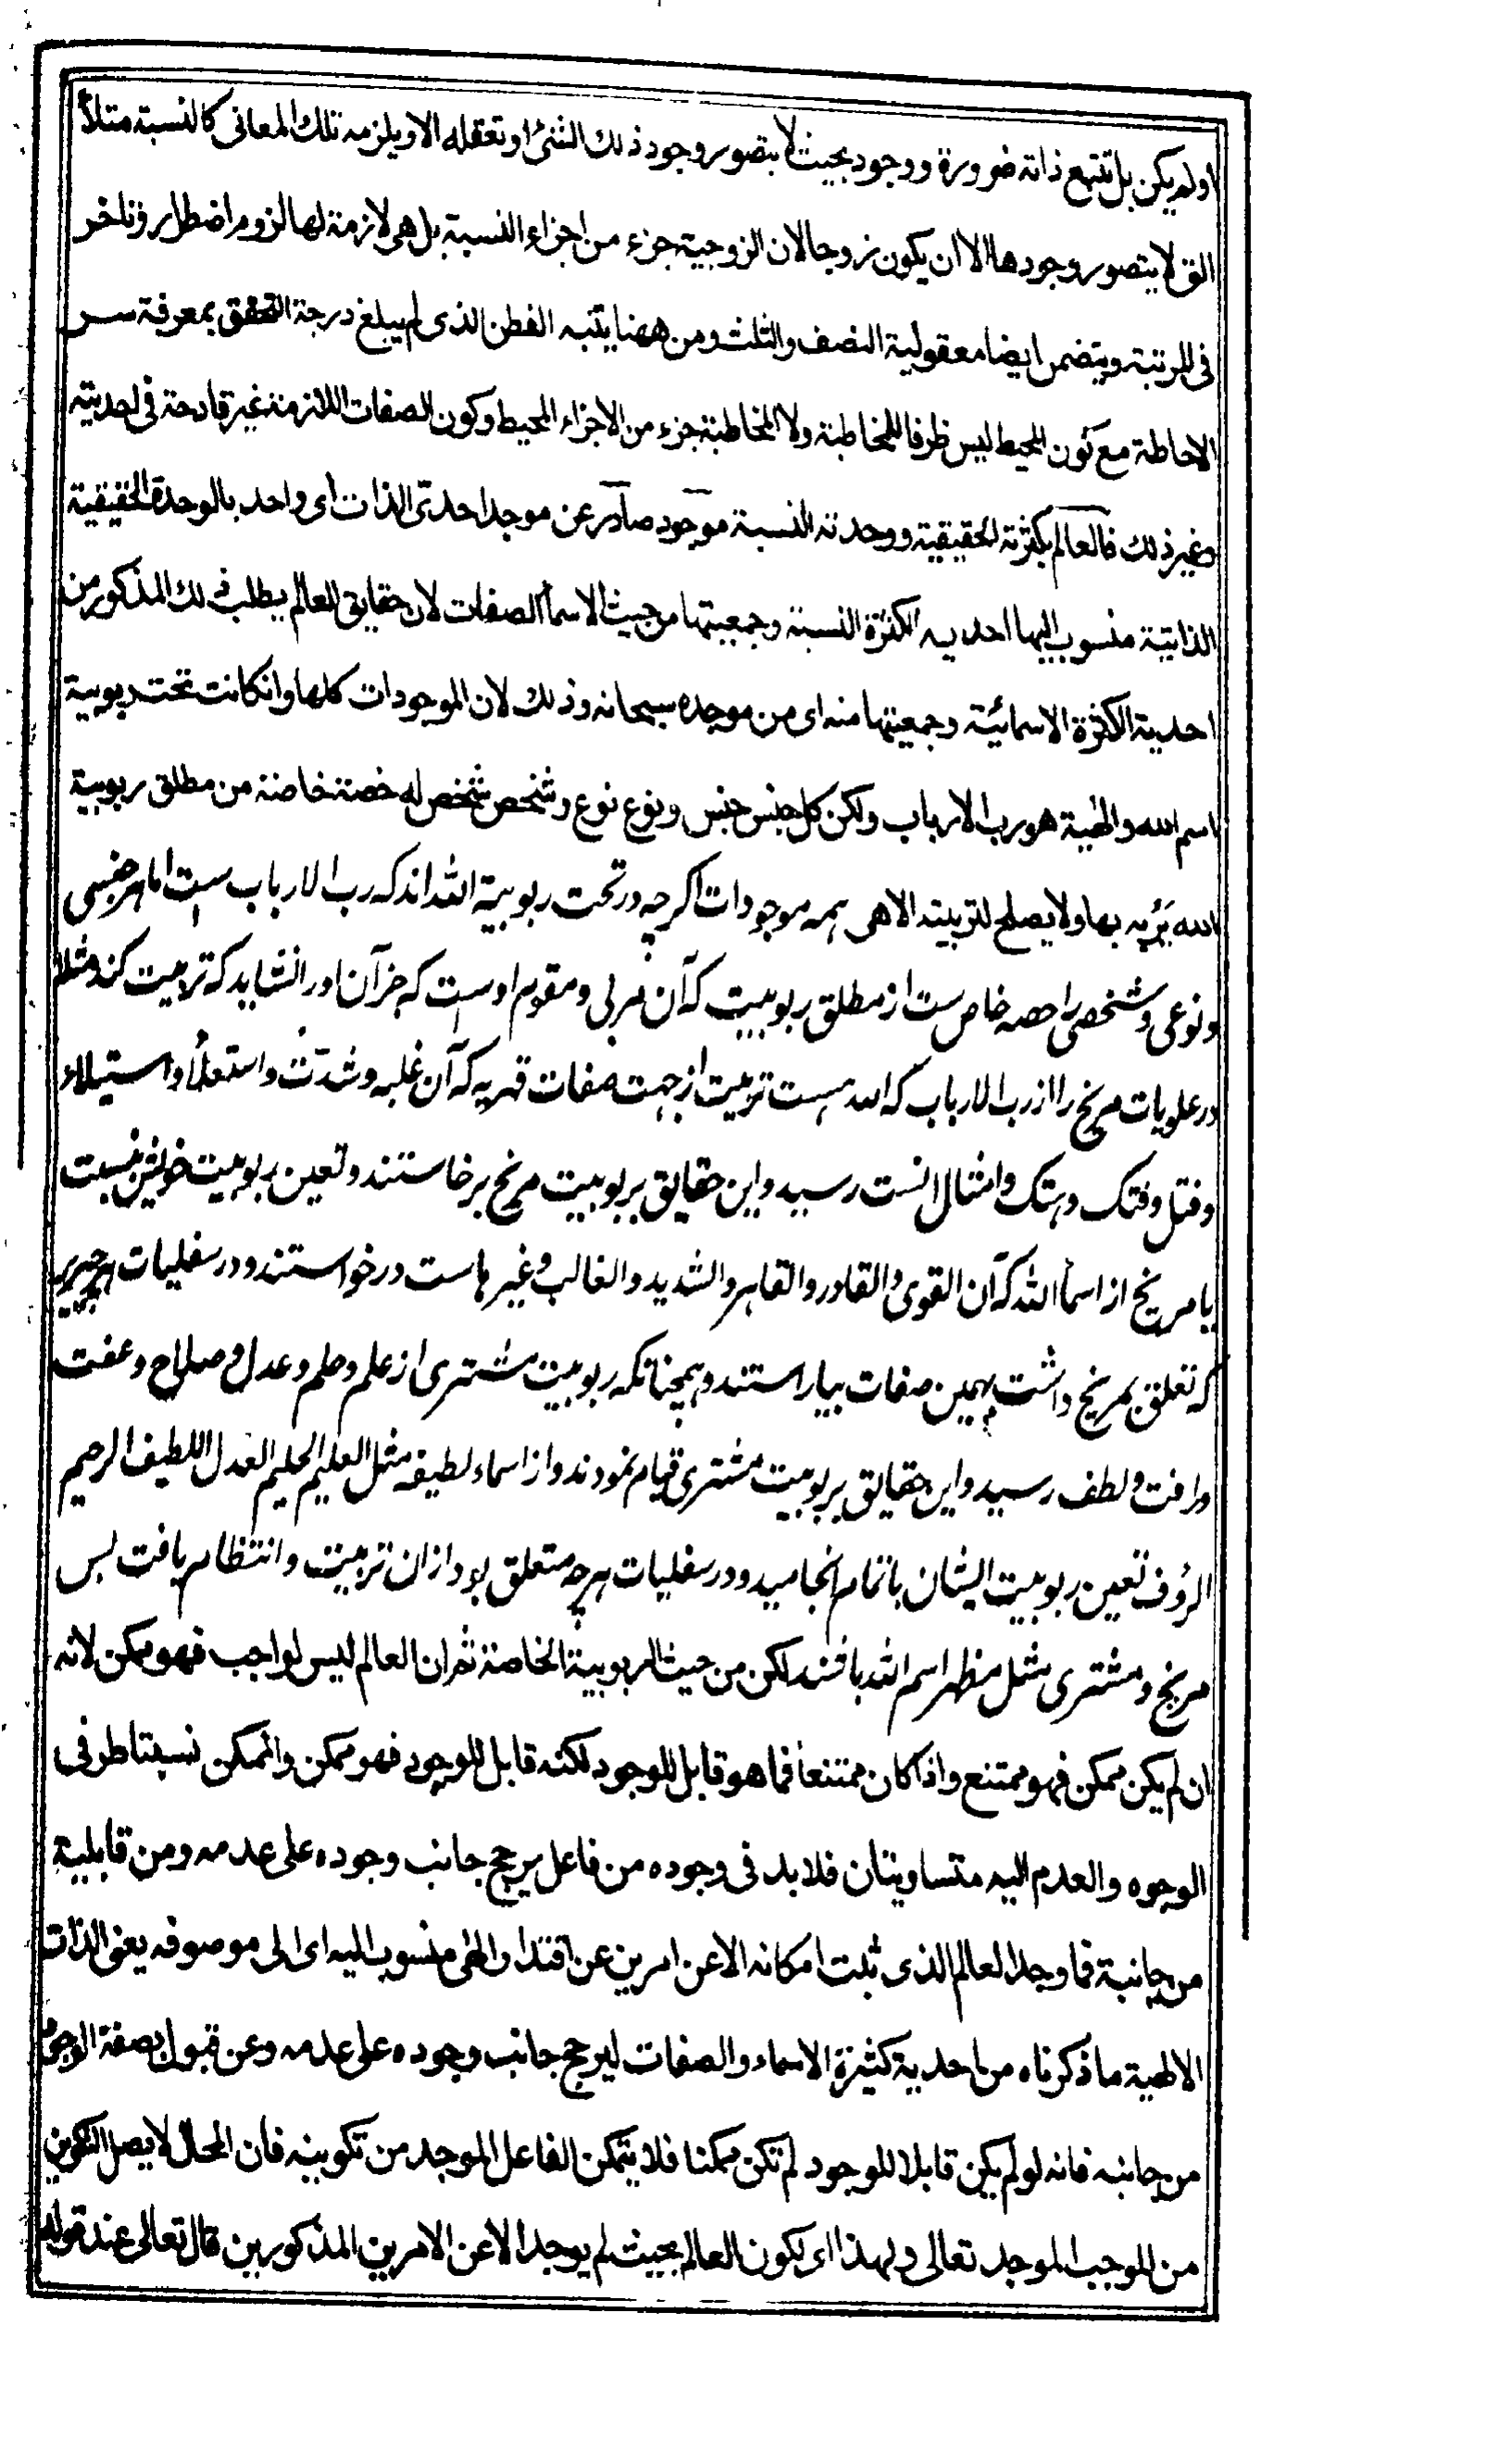 اولم يكن بل تتبع ذاته ضرورة ووجود بحيث لا يتصور وجود ذلك الشئ او تعقله الا ويلزمه تلك المعانى كالنسبة مثلاً
التى لا يتصور وجودها الا ان يكون زوجا لان الزوجية جزء من اجزاء النسبة بل هى لازمة لها لزوم اضطرار وتاخر
فى المرتبة ويتضمن ايضا معقولية النصف والثلث ومن ههنا يتنبه الفطن الذى لم يبلغ درجة التحقق بمعرفة سر
الاحاطة مع كون المحيط ليس ظرفا للمخاطبة ولا المخاطبة جزء من الاجزاء المحيط وكون الصفات اللازمة غير قادحة فى احديته
وغير ذلك فالعالم بكثرته الحقيقية ووحدته النسبة موجود صادر عن موجد احدىّ الذات اى واحد بالوحدة الحقيقية
الذاتية منسوب اليها احديه الكثرة النسبة وجمعيتها من حيث الاسما الصفات لان حقايق العالم يطلب ذلك المذكور من
احدية الكثرة الاسمائية وجمعيتها منه اى من موجده سبحانه وذلك لان الموجودات كلها وانكانت تحت ربوبية
اسم الله والهية هو رب الارباب ولكن كل جنس جنس ونوع نوع وشخص شخص له خصة خاصة من مطلق ربوبية
الله يَرُبه بها ولا يصلح لتربيته الا هى همه موجودات اگرچه در تحت ربوبية الله اند که رب الارباب ست اما هر جنسی
ونوعی وشخصی را حصه خاص ست از مطلق ربوبیت که آن مربی ومقوم اوست که جز آن اورا نشاید که تربیت کند مثلا
در علویات مریخ را از رب الارباب که الله هست تربیت از جهت صفات قهریه که آن غلبه وشدّت واستعلاء واستیلاء
وقتل وفتک وهتک وامثال انست رسید واین حقایق بربوبیت مریخ برخاستند وتعین ربوبیت خویش نسبت
با مریخ از اسما الله که آن القوی والقادر والقاهر والشدید والغالب وغیرهاست درخواستند ودر سفلیات هر چیزی
که تعلق بمریخ داشت بهمین صفات بیاراستند وهمچنانکه ربوبیت مشتری از علم وحلم وعدل وصلاح وعفت
ورافت ولطف رسید واین حقایق بربوبیت مشتری قیام نمودند واز اسماء لطیفه مثل العلیم الحلیم العدل اللطیف الرحیم
الرؤف تعین ربوبیت ایشان باتمام انجامید ودر سفلیات هرچه متعلق بود ازان تربیت وانتظام یافت پس
مریخ ومشتری مثل مظهر اسم الله یافتند لكن من حيث الربوبية الخاصة ثم ان العالم ليس لواجب فهو ممكن لانه
ان لم يكن ممكن فهو ممتنع واذا كان ممتنعا فما هو قابل للوجود لكنه قابل للوجود فهو ممكن والممكن نسبتا طرفى
الوجوه والعدم اليه متساويتان فلابد فى وجوده من فاعل يرجح جانب وجوده على عدمه ومن قابلية
من جانبه فما وجد العالم الذى ثبت امكانه الا عن امرين عن اقتدار الهى منسوب اليه اى الى موصوفه يعنى الذات
الالهية ما ذكرناه من احدية كثيرة الاسماء والصفات ليرجح جانب وجوده على عدمه وعن قبول بصفة الوجود
من جانبه فانه لو لم يكن قابلا للوجود لم تكن ممكنا فلا يتمكن الفاعل الموجد من تكوينه فان المحال لا يصل التكوين
من الموجب الموجد تعالى ولهذا اى لكون العالم بحيث لم يوجد الا عن الامرين المذكورين قال تعالى عند قوله